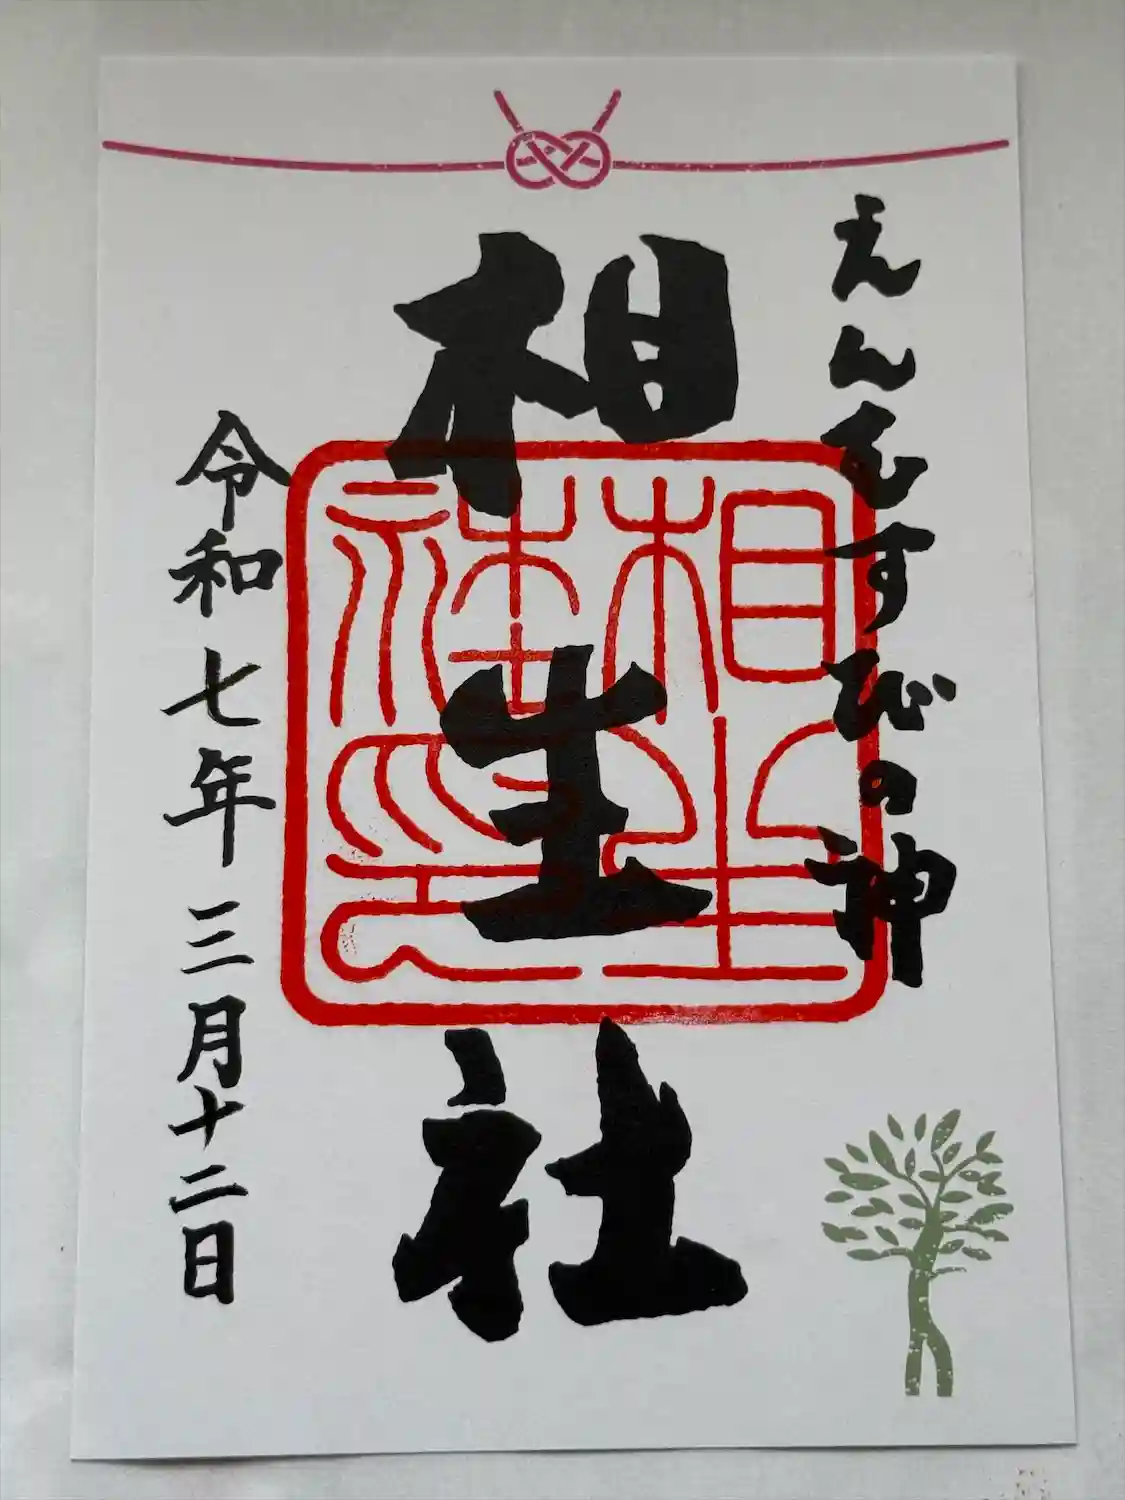 えんむすびの神
相生社
相生社印
令和七年三月十二日